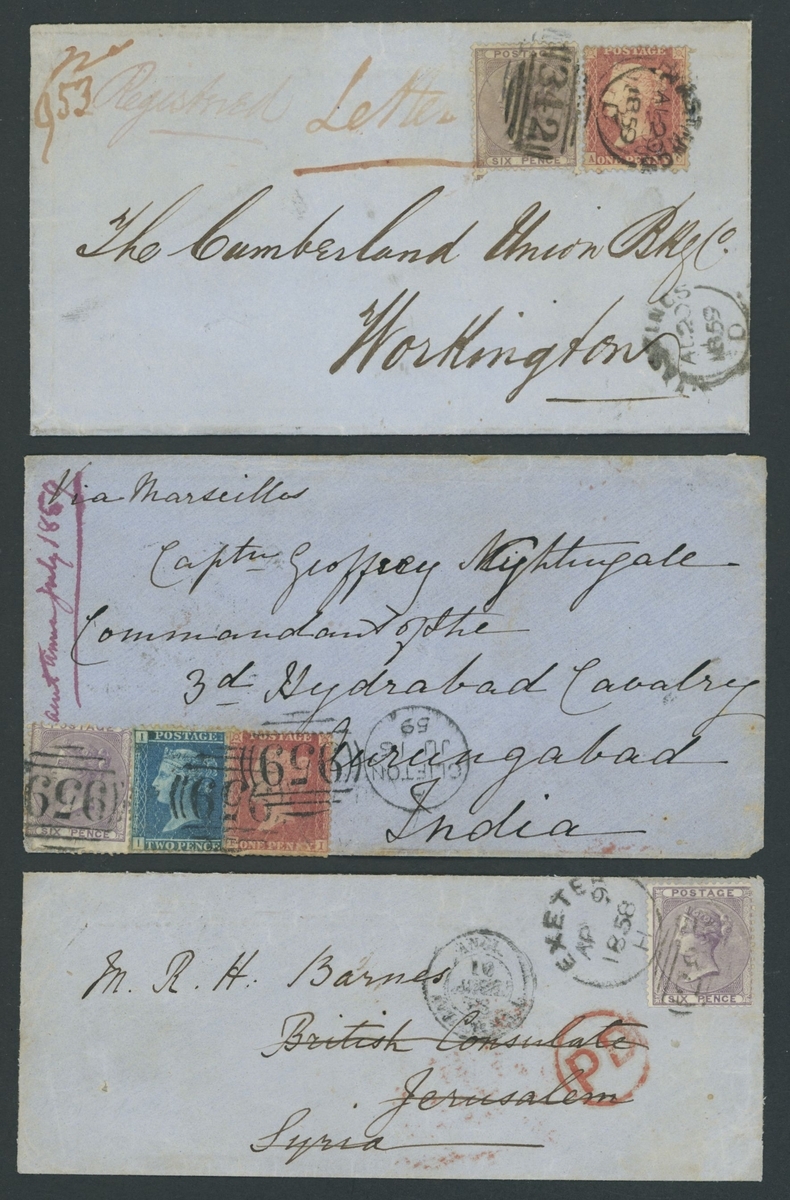 No
953 Registered Letter
POSTAGE
342
SIX PENCE
POSTAGE
A ONE PENNY
AU 20
1859
D
The Cumberland Union Bkg Co.
Workington
HASTINGS
AU 20
1859
D
Via Marseilles
July 185
Captn Geoffrey Nightingale
Commandant of the
3d Hydrabad Cavalry
Aurungabad
India
POSTAGE
SIX PENCE
959
I POSTAGE
I TWO PENCE
959
POSTAGE
ONE PENNY I
959
CLIFTON
JU
59
EXETER
AP 6
1858
H
POSTAGE
SIX PENCE
M. R. H. Barnes
British Consulate
Jerusalem
Syria
ANGL.
PD